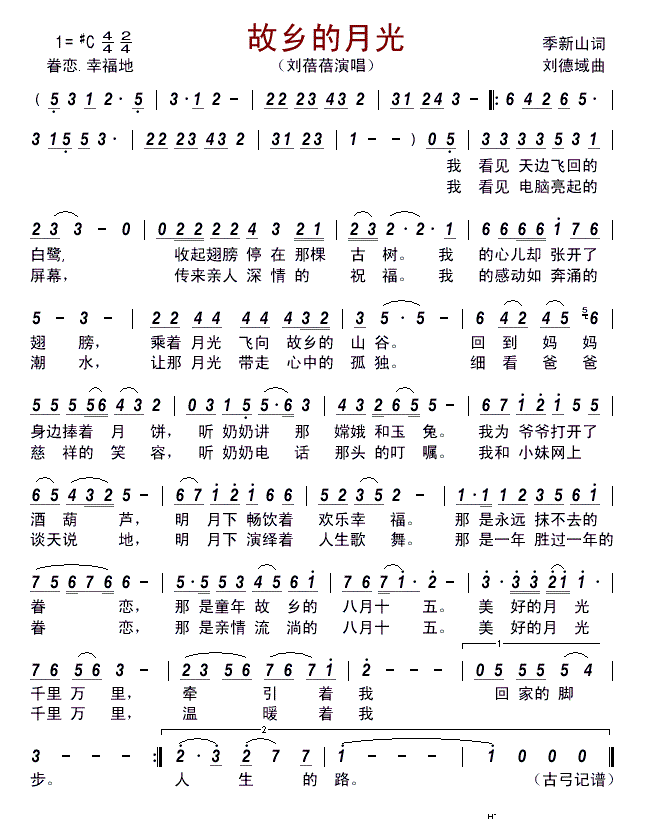 故乡的月光
1= #C 4/4 2/4
眷恋. 幸福地
（刘蓓蓓演唱）
季新山词
刘德域曲
( 5 3 1 2 · 5 | 3 · 1 2 – | 22 23 43 2 | 31 24 3 – |: 6 4 2 6 5 ·
3 15 5 3 · | 22 23 43 2 | 31 23 | 1 – – ) 0 5 | 3 3 3 3 5 3 1
我 看见 天边飞回的
我 看见 电脑亮起的
2 3 3 – 0 | 0 2 2 2 2 4 3 21 | 2 3 2 · 2 · 1 | 6 6 6 6 1 7 6
白鹭, 收起翅膀 停 在 那棵 古 树。 我 的心儿却 张开了
屏幕, 传来亲人 深 情 的 祝 福。 我 的感动如 奔涌的
5 – 3 – | 2 2 4 4 4 4 4 32 | 3 5 · 5 – | 6 4 2 4 5 5 6
翅 膀, 乘着 月光 飞向 故乡的 山 谷。 回 到 妈 妈
潮 水, 让那 月光 带走 心中的 孤 独。 细 看 爸 爸
5 5 5 56 4 3 2 | 0 3 1 5 5 · 6 3 | 4 3 2 6 5 5 – | 6 7 1 2 1 5 5
身边捧着 月 饼, 听 奶奶讲 那 嫦娥 和玉 兔。 我为 爷爷打开了
慈 祥的 笑 容, 听 奶奶电 话 那头 的叮 嘱。 我和 小妹网上
6 5 4 32 5 – | 6 7 1 2 1 6 6 | 5 2 3 5 2 – | 1 · 1 1 2 3 5 6 1
酒 葫 芦, 明 月下 畅饮着 欢乐 幸 福。 那 是永远 抹不去的
谈天说 地, 明 月下 演绎着 人生歌 舞。 那 是一年 胜过一年的
7 5 6 7 6 6 – | 5 · 5 5 3 4 5 6 1 | 7 7 1 · 2 – | 3 · 3 3 2 1 1
眷 恋, 那 是童年 故 乡的 八月十 五。 美 好的月 光
眷 恋, 那 是亲情 流 淌的 八月十 五。 美 好的月 光
1
7 6 5 6 3 – | 2 3 5 6 6 7 7 1 | 2 – – – | 0 5 5 5 5 4
千里 万 里, 牵 引 着 我 回 家的 脚
千里 万 里, 温 暖 着 我
2
3 – – – :| 2 · 3 2 7 7 | 1 – – – | 1 0 0 0 ‖
步。 人 生 的 路。 （古弓记谱）